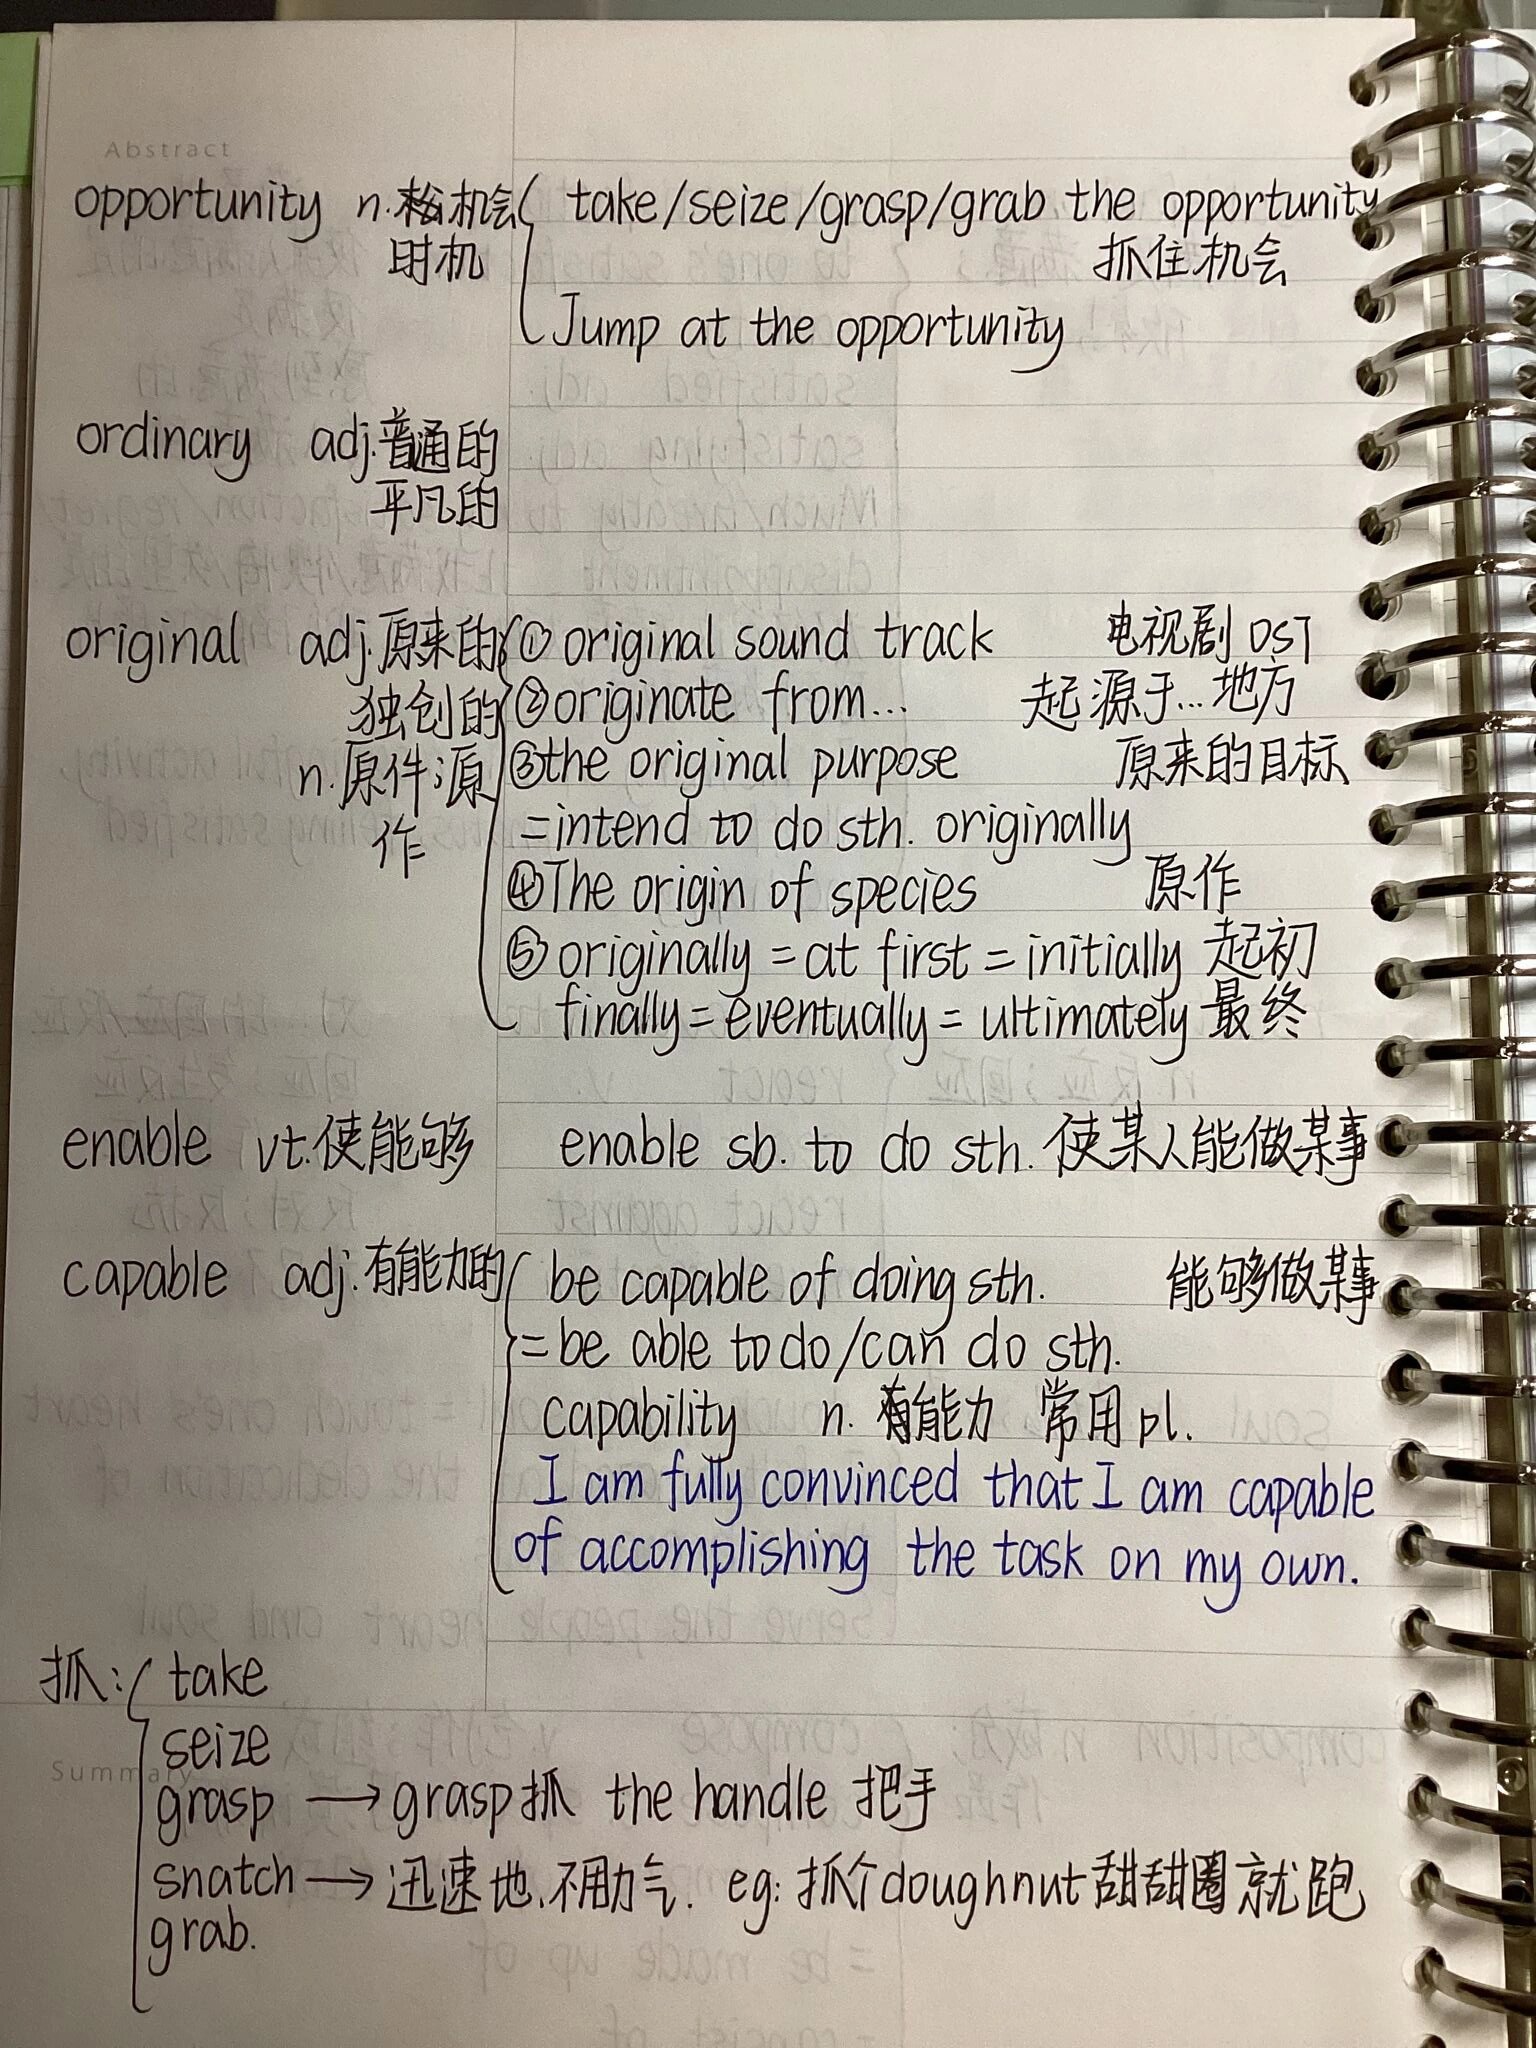 Abstract
opportunity n. 机会 take/seize/grasp/grab the opportunity
时机 抓住机会
Jump at the opportunity
ordinary adj.普通的
平凡的
original adj.原来的 ①original sound track 电视剧OST
独创的 ②originate from... 起源于...地方
n.原件;源 ③the original purpose 原来的目标
=intend to do sth. originally
作
④The origin of species 原作
⑤originally = at first = initially 起初
finally = eventually = ultimately 最终
enable vt.使能够 enable sb. to do sth. 使某人能做某事
capable adj.有能力的 be capable of doing sth. 能够做某事
=be able to do/can do sth.
capability n. 有能力 常用pl.
I am fully convinced that I am capable
of accomplishing the task on my own.
抓: take
seize
Summary
grasp → grasp抓 the handle 把手
snatch → 迅速地.不用力气. eg: 抓个doughnut甜甜圈就跑
grab.